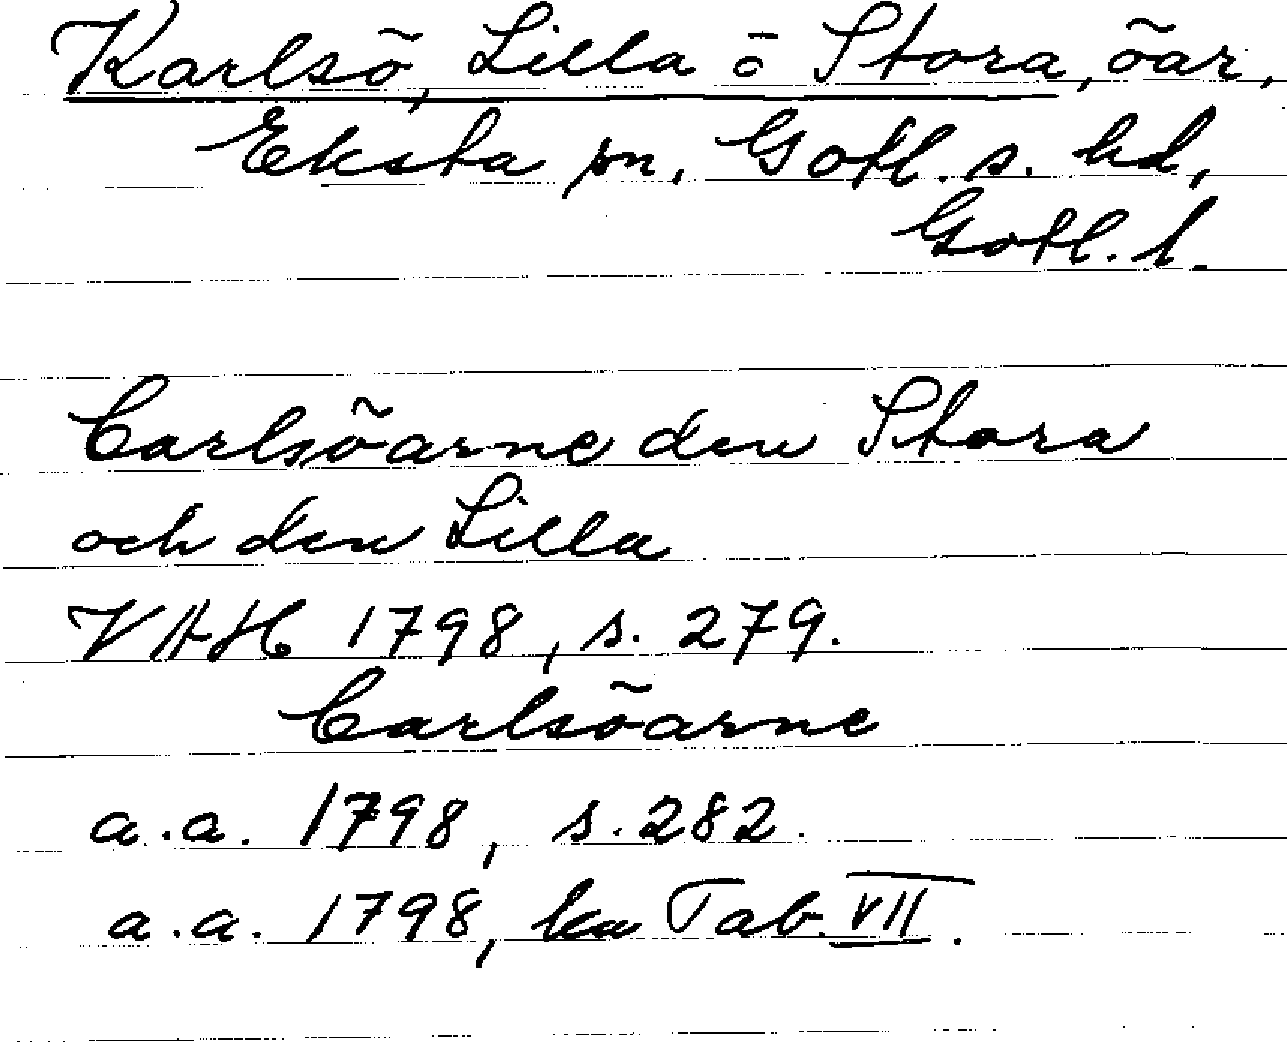 Karlsö, Lilla o Stora, öar,
Eksta sn, Gotl. s. hd,
Gotl. l.
Carlsöarne den Stora
och den Lilla
VAH 1798, s. 279.
Carlsöarne
a.a. 1798, s. 282.
a.a. 1798, ka Tab. VII.